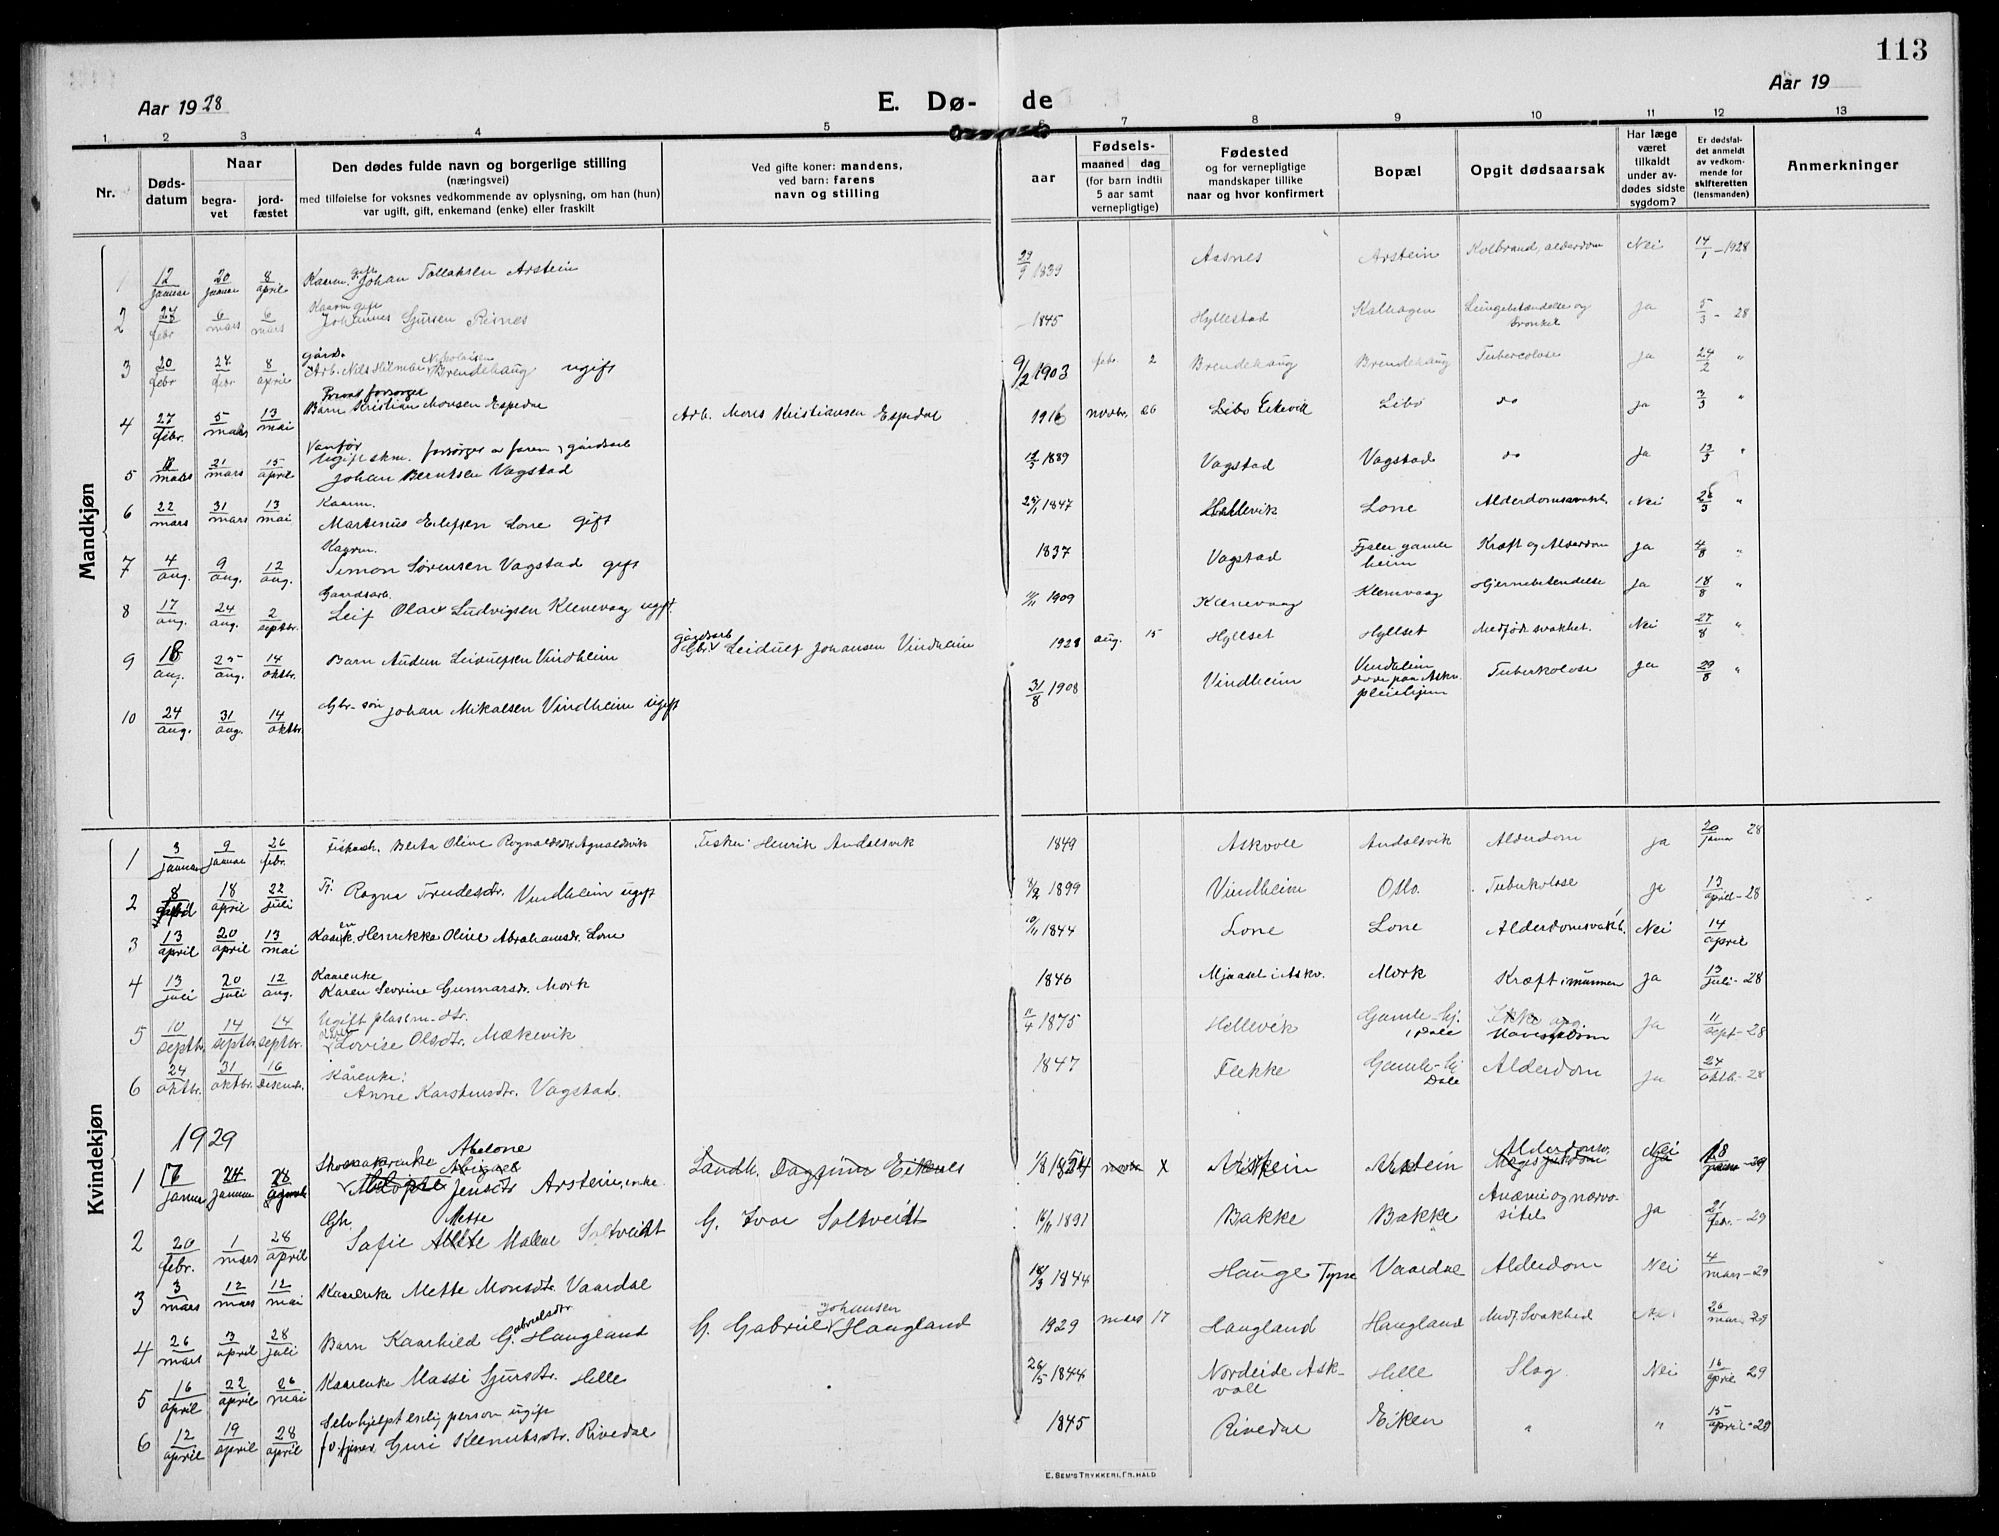 113
Aar 1928
E. Dø-de
Aar 19
1 2 3 4 5 6 7 8 9 10 11 12 13
Nr.
Døds-datum
Naar
begra-vet
jord-fæstet
Den dødes fulde navn og borgerlige stilling
(næringsvei)
med tilføielse for voksnes vedkommende av oplysning, om han (hun)
var ugift, gift, enkemand (enke) eller fraskilt
Ved gifte koner: mandens,
ved barn: farens
navn og stilling
Fødsels-
aar
maaned dag
(for barn indtil
5 aar samt
vernepligtige)
Fødested
og for vernepligtige
mandskaper tillike
naar og hvor konfirmert
Bopæl
Opgit dødsaarsak
Har læge
været
tilkaldt
under av-
dødes sidste
sygdom?
Er dødsfal-
det anmeldt
av vedkom-
mende for
skifteretten
(lensmanden)
Anmerkninger
Mandkjøn
1 12/januar 20/januar 8/april Kaarm. gift Johan Tollaksen Arstein 1839 Aasnes Arstein Kolbrand, alderdom Nei 14/1-1928
2 27/febr 6/mars 6/mars Kaarm gift Johannes Sjursen Risnes 1845 Hyllestad Kalhagen Lungebetændelse og Bronkit ja 5/3-28
3 20/febr 27/febr 8/april gårds. Arb. Nils Hilmar Nikolaisen Brendehaug ugift 9/2 1903 febr 2 Brendehaug Brendehaug Tubercolose ja 24/2 "
4 27/febr. 5/mars 13/mai Privat forsørget Barn Kristian Monsen Espedal Arb. Mons Kristiansen Espedal 1916 novbr. 26 Libo Eikevik Libo do ja 3/3 "
5 mars 21/mars 15/april Vanfør Ugift skm. forsørget av faren, gårdsarb Johan Berntsen Vagstad 1889 Vagstad Vagstad do ja 13/3 "
6 22/mars 31/mars 13/mai Kaarm. Martinus Eilefsen Lone gift 1847 Hellevik Lone Alderdomssvakh. Nei "
7 4/aug. 9/aug. 12/aug. Kaarm. Simon Sørensen Vagstad gift 1837 Vagstad Fjaler gamleheim Kræft og Alderdom ja 4/8 "
8 17/aug. 24/aug. 2/septbr. Gaardsarb. Leif Olav Ludvigsen Klenevaag ugift. 1909 Klenevaag Klenevaag Hjernebetendelse ja 18/8 "
9 18/aug. 25/aug. 14/oktbr. Barn Audun Leidulfsen Vindheim gårdsarb Gbr. Leidulf Johansen Vindheim 1928 aug. 15 Hyllset Hyllset Medfødt svakhet. Nei 27/8 "
10 24/aug. 31/aug. 14/oktbr. Gbr-søn Johan Mikalsen Vindheim ugift 31/8 1908 Vindheim Vindheim døde paa Askv. pleiehjem Tuberkolose ja 29/8 "
Kvindekjøn
1 3/januar 9/januar 26/febr. Berta Oline Rognaldsdtr. Fisker Henrik Andalsvik 1849 Askvoll Andalsvik Alderdom ja 20/januar 28
2 8/april 18/april 22/juli Fr. Ragna Trudesdtr. Vindheim ugift 1899 Vindheim Oslo. Tuberkolose ja 13/april-28
3 13/april 20/april 13/mai Henrikke Oline Abrahamsdr. Lone 1844 Lone Lone Alderdomsvakh. Nei 14/april
4 13/juli 20/juli 12/aug. Kaarenke Karen Sevrine Gunnarsdr. Mork 1846 Mjaaset i Askv. Mork Kræft i munnen ja 13/juli-28
5 10/septbr. 14/septbr. 14/septbr. Ugift plasem-dtr. Lovise Olsdtr. Mækevik 11/4 1875 Hellevik Gamle-hj. i Dale ja 11/sept-28
6 24/oktbr. 31/oktbr. 16/desembr. Kårenke: Anne Karstensdtr. Vagstad. 1847 Flekke Gamle-hj Dale Alderdom ja 24/oktb.-28
1929
1 17/januar 24/januar 28 Abelone Jensdtr Arstein, enke Landh. Dagfinn Eiknes Arstein Arstein Alderdomsv. Nei 18/januar-29
2 20/febr. 1/mars 28/april Gh. Mette Sofie Malene Soltveidt G. Ivar Soltveidt 1891 Bakke Bakke Anæmi og nervøsitet ja 21/febr.-29
3 3/mars 12/mars 12/mai Kaarenke Mette Monsdtr. Vaardal 1844 Hauge Vaardal Alderdom Nei 4/mars-29
4 26/mars 3/april 28/juli Barn Kaarhild Gabrielsdtr Haugland G. Gabriel Johansen Haugland 1929 mars 17 Haugland Haugland Medf. Svakhed Nei 26/mars-29
5 16/april 22/april 26/mai Kaarenke Massi Sjursdtr. Helle 26/5 1844 Nordeide, Askvoll Helle Slag Nei 16/april 29
6 12/april 19/april 28/april Selvhjulpt enslig person ugift Guri Klemetsdtr. Rivedal 1845 Rivedal Eiken " " 15/april-29
E. SEM'S TRYKKERI, FR.HALD